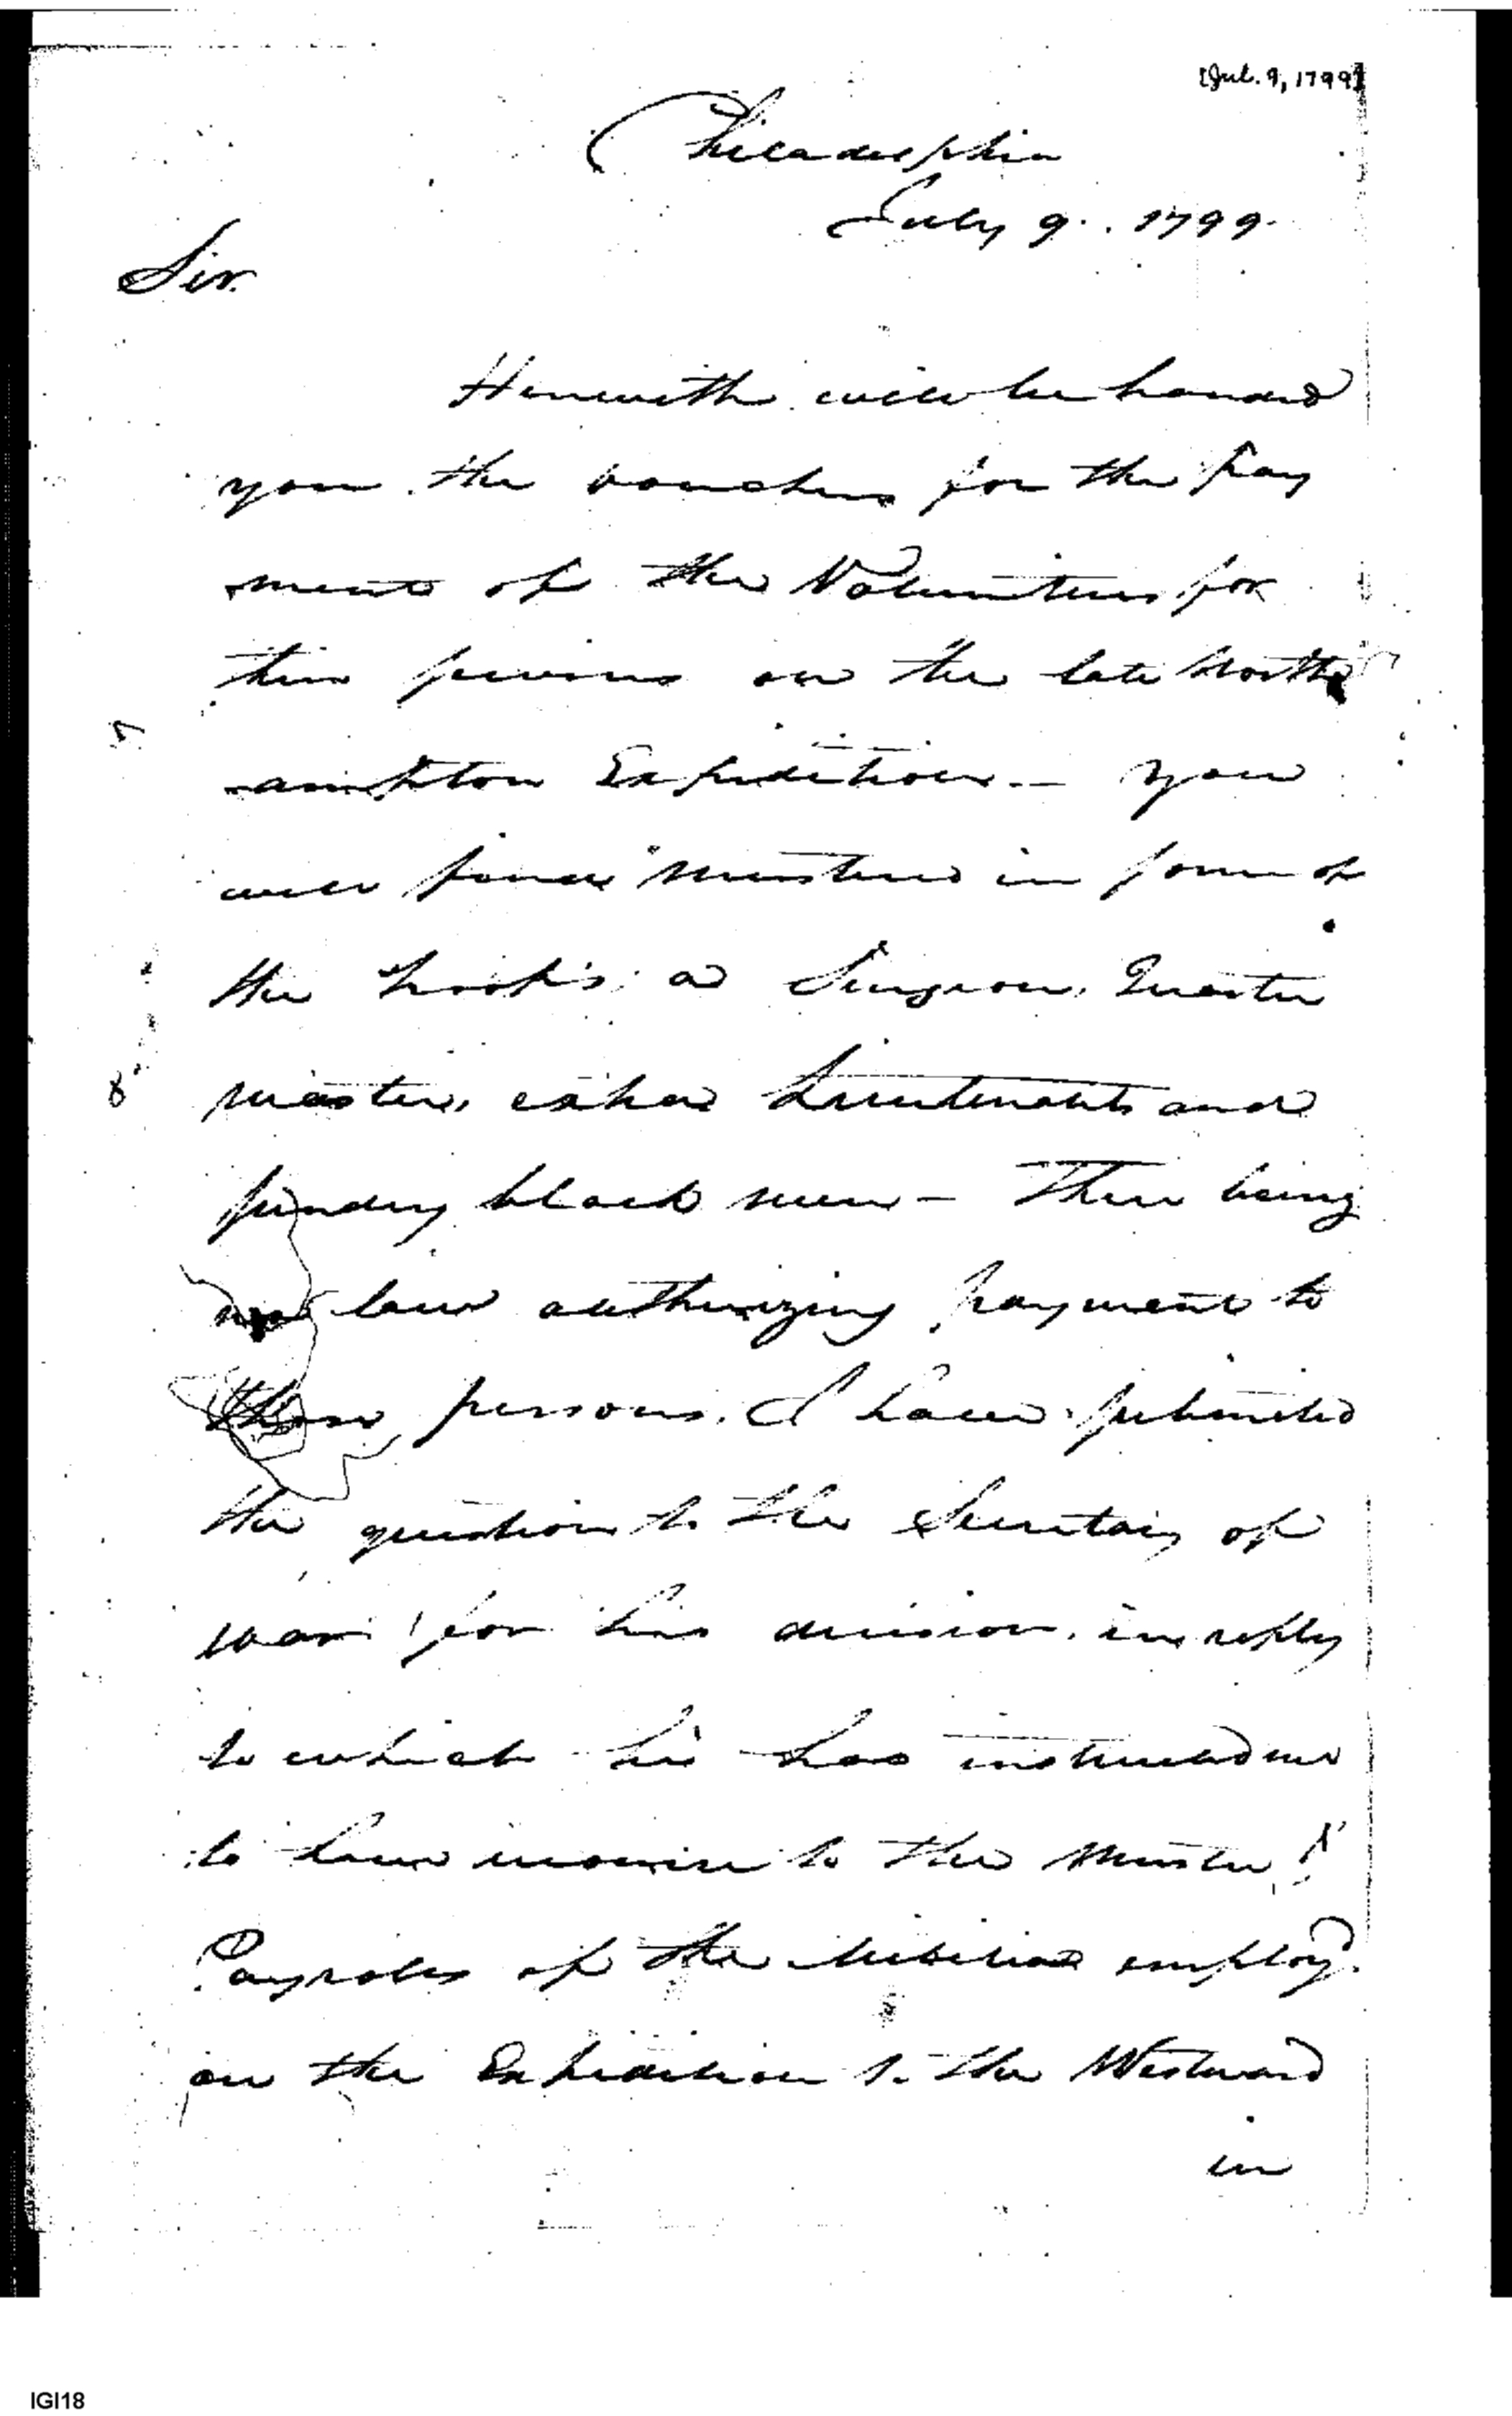 [Jul. 9, 1799]
Philadelphia
July 9. 1799
Sir.
Herewith will be handed
you the vouchers for the pay
ment of the Volunteers for
their services on the late North
ampton Expedition — you
will find mustered in some of
the troops a Surgeon, Quarter
master, extra Lieutenants and
sundry black men — There being
no law authorizing payment to
those persons, I have submitted
the question to the Secretary of
War for his decision, in reply
to which he has instructed me
to have recourse to the Muster &
Payrolls of the Militia employ'd
on the Expedition to the Westward
in
IGI18